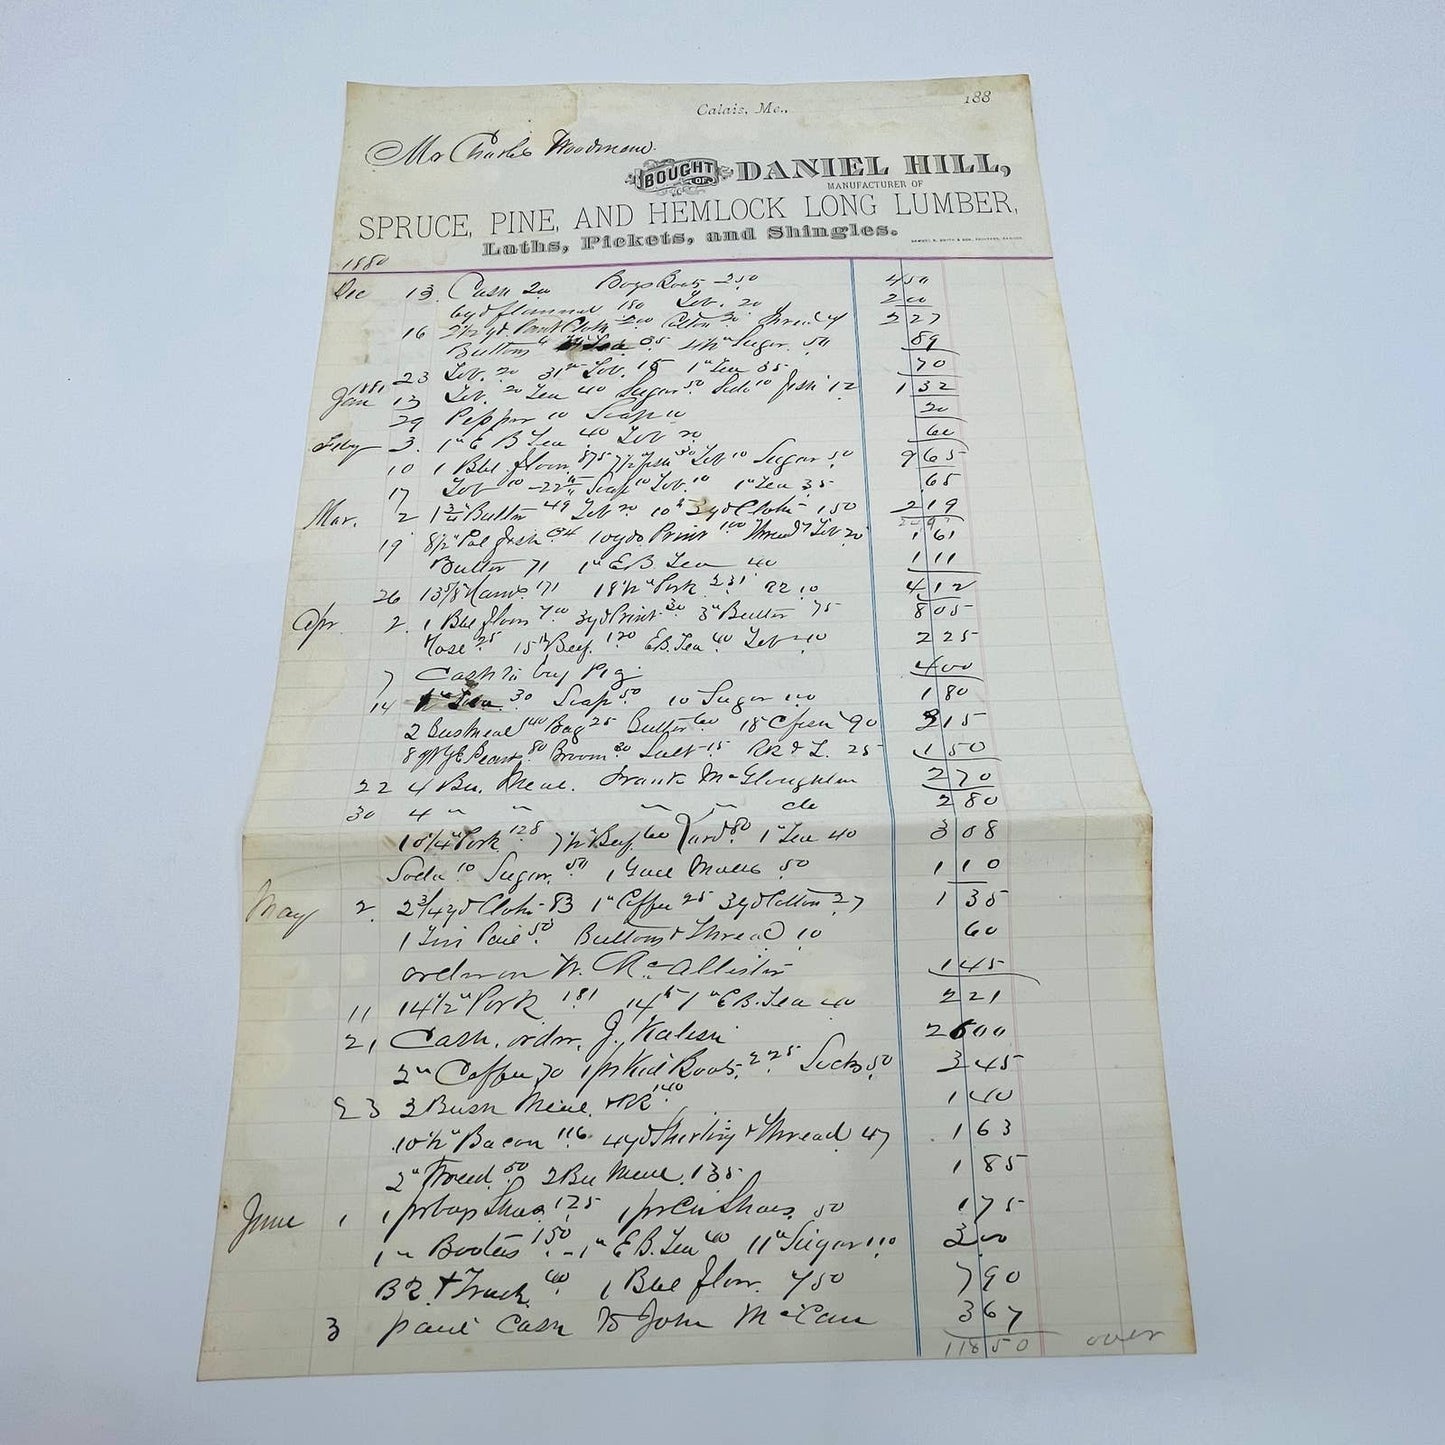 Calais, Me., 188
Mr Charles Woodman.
BOUGHT OF DANIEL HILL,
MANUFACTURER OF
SPRUCE, PINE, AND HEMLOCK LONG LUMBER,
Laths, Pickets, and Shingles.
1880
Dec 13 Cash 2.00 Boys Boots 250 450
6yd flannel 180 Tob. 20 200
16 2 1/2 yd. Pant Cloth Cotton Thread 4 227
Buttons 6 35 Sugar 50 89
23 Tob. 20 Tob. 15 1" Tea 35 70
1881
Jan 13 Tob. 20 Tea 40 Sugar 50 Soda 10 fish 12 1 32
29 Pepper 10 Soap 10 20
Feby 3. 1" E B Tea 40 Tob 20 60
10 1 Bbl. flour 875 7 1/2 fish 30 Tob 10 Sugar 50 9 65
17 Tob 10 Soap 10 Tob. 10 1" Tea 35 65
Mar. 2 1 3/4" Butter 49 Tob 20 10th 3yd Cloth 150 219
19 8 1/2" Pol fish 34 10yds Print 100 Thread 7 Tob 20 1 61
Butter 71 1" E.B. Tea 40 1 11
26 13 5/8" Ham 171 18 1/2" Pork 231 RR 10 4 12
Apr. 2. 1 Bbl flour 700 3yd Print 30 3" Butter 75 8 05
Hose 25 15" Beef. 120 E.B. Tea 40 Tob 40 2 25
7 Cash to buy Pig 400
14 1" Tea 30 Soap 50 10 Sugar 100 1 80
2 Bus meal 140 Bag 25 Butter 60 18 C fish 90 315
8 qt Y.E Peas 80 Broom 30 Salt 15 RR & T. 25 150
22 4 Bu. Meal. Frank McGloughlin 270
30 4 " " " " do 280
10 1/4" Pork 128 7 1/2" Beef. 60 Yard 80 1" Tea 40 308
Soda 10 Sugar. 50 1 Gall Molls 50 110
May 2. 2 3/4 yd Cloth 83 1" Coffee 25 3yd Cotton 27 1 35
1 Tin Pail 50 Buttons & Thread 10 60
order on W. McAllister 145
11 14 1/2" Pork 181 14th 1" E B. Tea 40 221
21 Cash. order. J. Kalish 2600
2" Coffee 70 1 pr Kid Boots. 225 Socks 50 345
23 2 Bush Meal. & RR 140 140
10 1/2" Bacon 116 4yd Shirting & Thread 47 163
2" 50 2 Bu Meal. 135 185
June 1 1 pr boys Shoes 125 1 pr Ch Shoes. 50 175
1" Bootees 150 1" E B. Tea 40 11" Sugar 110 300
BR. & Truck. 40 1 Bbl flour. 750 790
3 paid Cash to John McCann 367
118 50 over